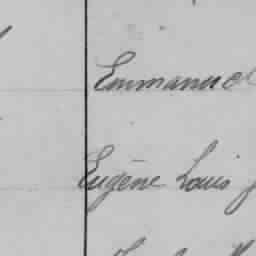 Emmanuel
Eugène Louis